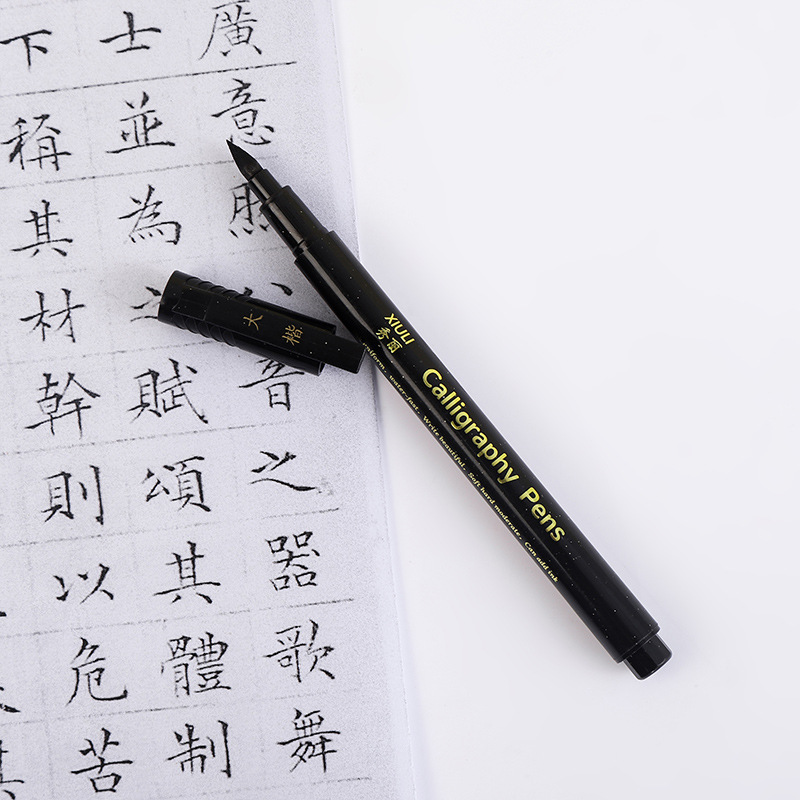 廣意然八音之器歌舞
士並為之賦頌其體制
下稱其材幹則以危苦
大楷
XIULI
秀丽
Calligraphy Pens
water-fast. Write beautiful. Soft hard moderate. Can add ink